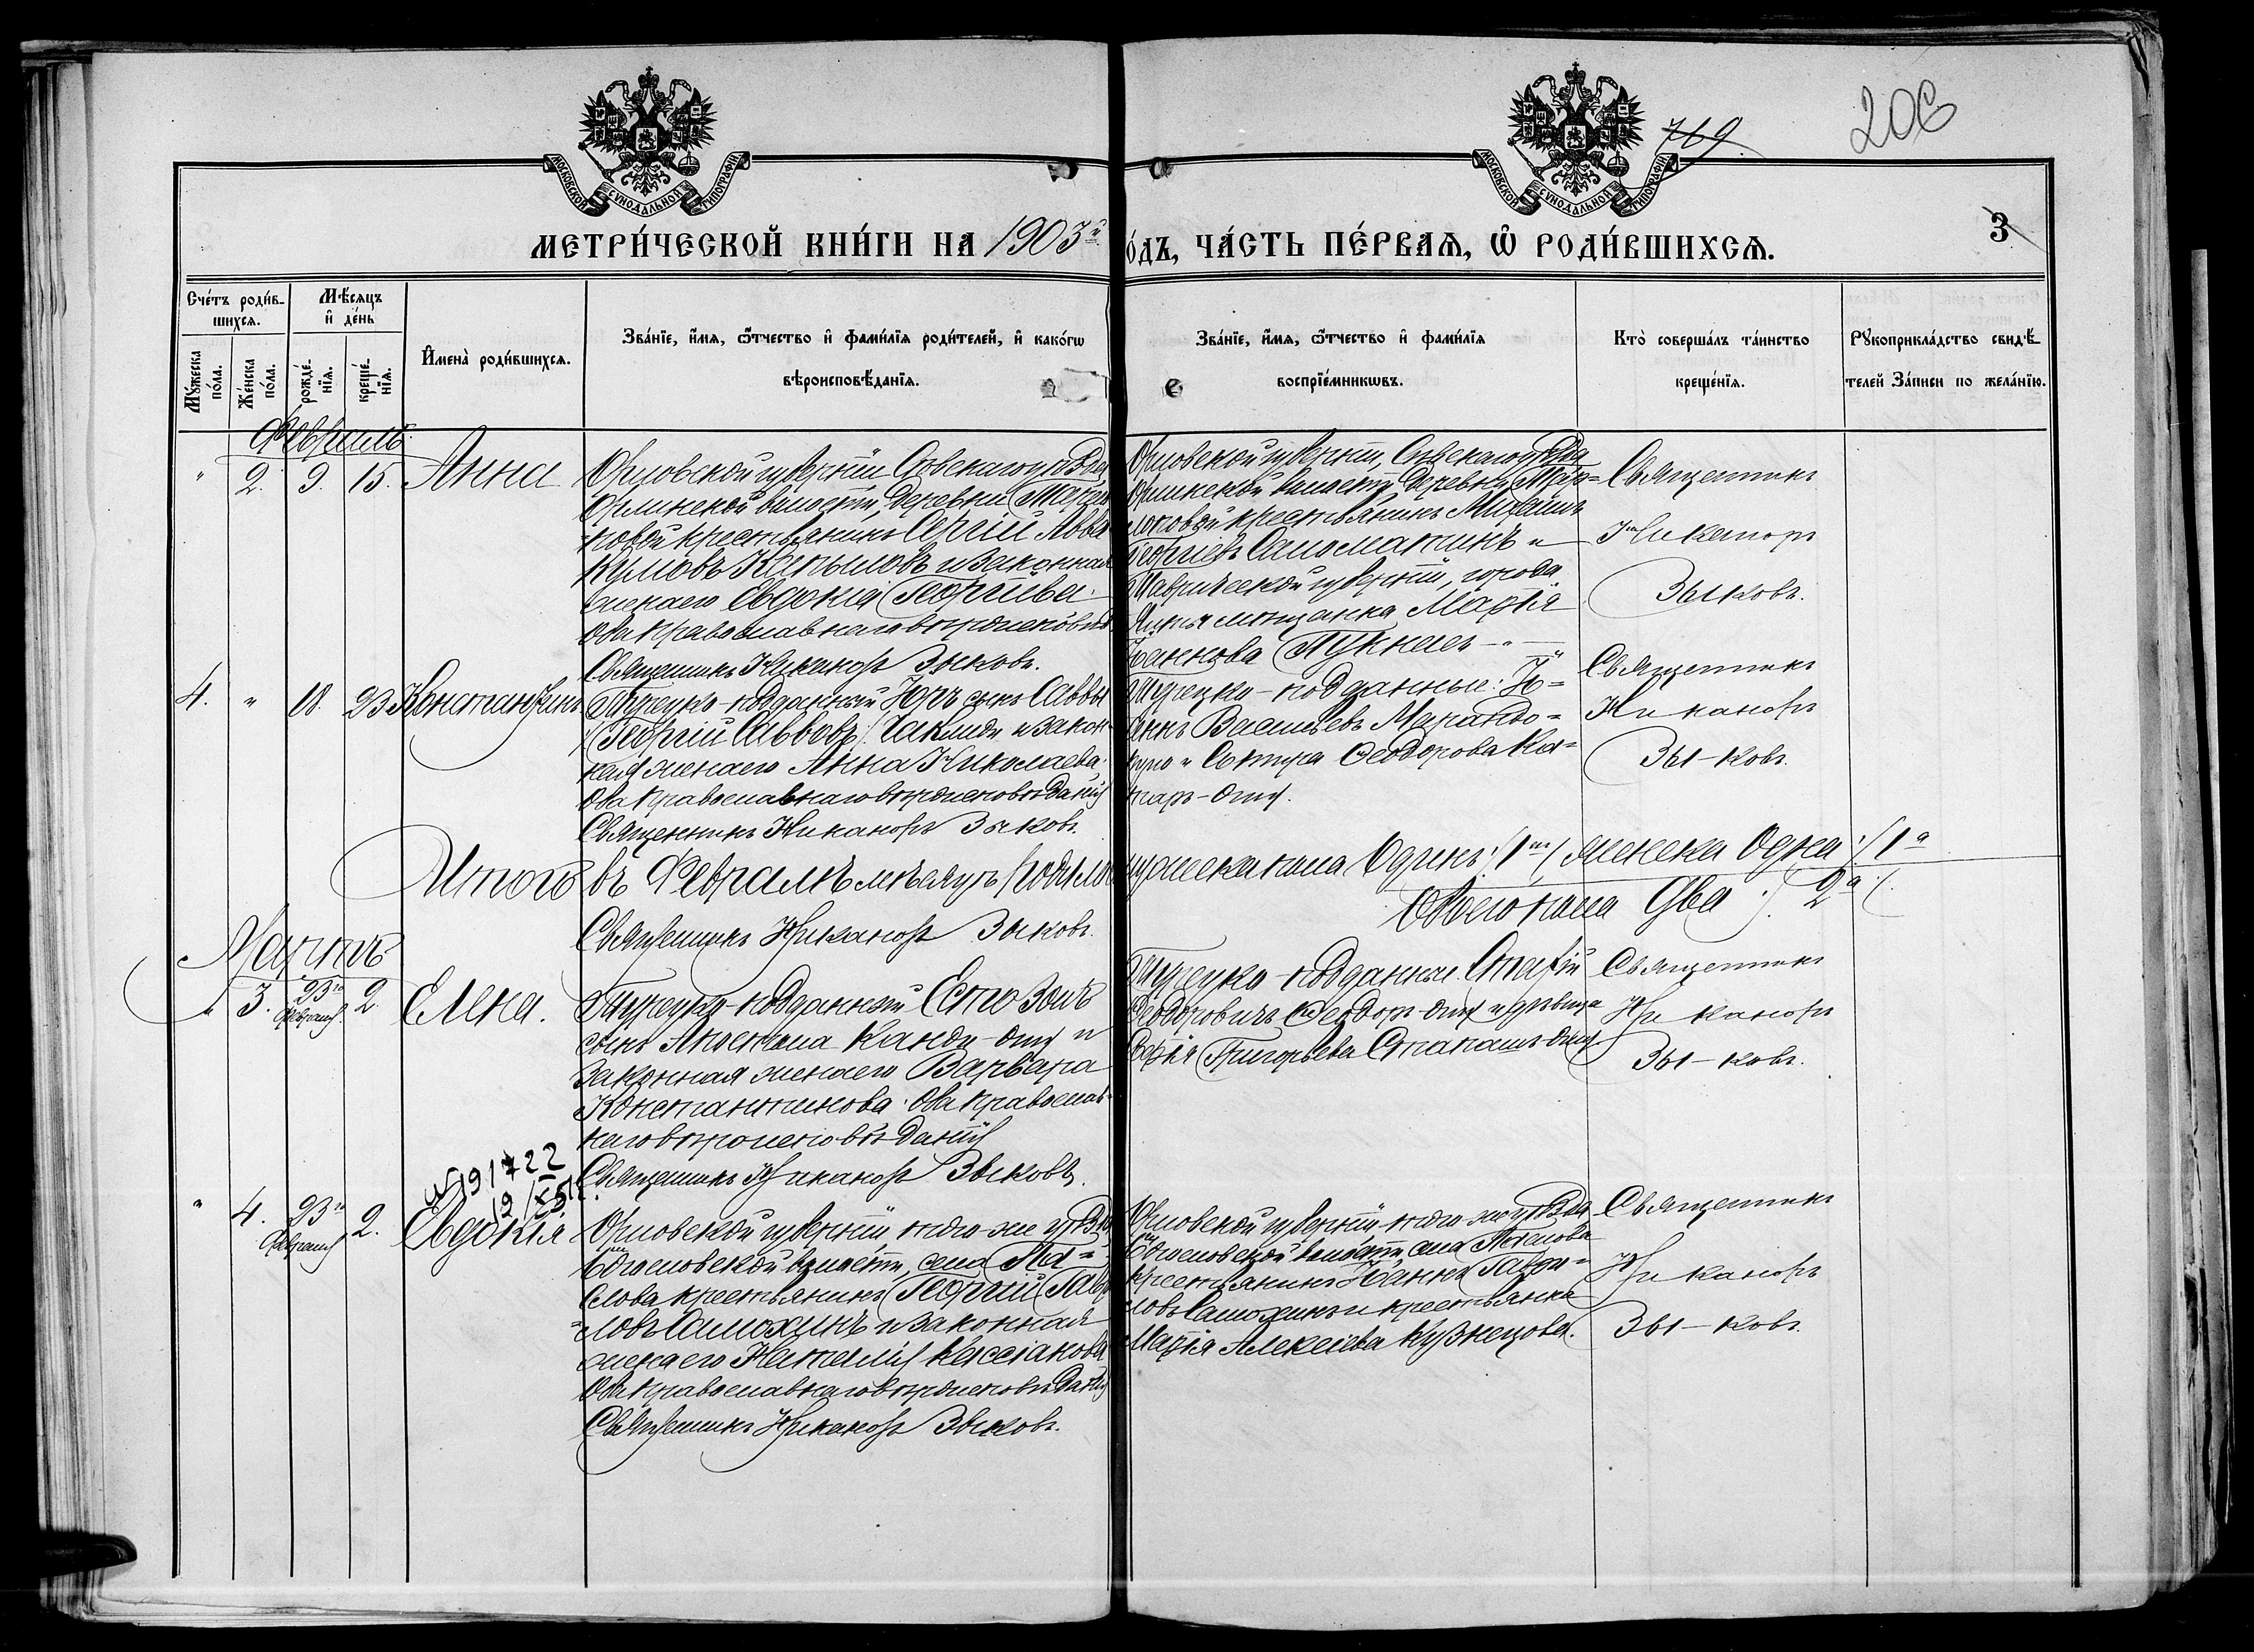 719
206
МОСКОВСКОЙ СУНОДАЛЬНОЙ ТИПОГРАФІИ
МОСКОВСКОЙ СУНОДАЛЬНОЙ ТИПОГРАФІИ
МЕТРИ́ЧЕСКОЙ КНИ́ГИ НА 1903й
О́ДЪ, ЧА́СТЬ ПЕ́РВАѦ, Ѽ РОДИ́ВШИХСѦ.
3
Сче́тъ роди́в-
шихся.
Мѣ́сяцъ
и҆ де́нь
Мꙋ́жеска по́ла.
Же́нска по́ла.
рожде́-нїя.
креще́-нїя.
И҆мена̀ роди́вшихся.
Зва́нїе, и҆́мя, ѻ҆́тчество и҆ фами́лїя роди́телей, и҆ како́гѡ
вѣроисповѣ́данїя.
Зва́нїе, и҆́мя, ѻ҆́тчество и҆ фами́лїя
воспрїе́мникѡвъ.
Кто̀ соверша́лъ та́инство
креще́нїя.
Рꙋкоприкла́дство свидѣ́-
телей За́писи по жела́нїю.
Февраль
" 2. 9. 15. Анна
Орловской губерніи Сѣвскаго уѣзда
волости, деревни
новой крестьянинъ Сергій Авва
кумовъ Копыловъ и законная
жена его Евдокія Георгіева
оба православнаго вѣроисповѣд
Священникъ Никаноръ Зыковъ.
Орловской губерніи, Сѣвскаго уѣзда
волости деревни
крестьянинъ Михаилъ
Георгіевъ Саломатинъ и
Таврической губерніи, города
Ялты мѣщанка Марія
Іванова
Священникъ
Никаноръ
Зыковъ.
4. " 18. 23 Константинъ
Турецко-подданный сынъ Саввы
Георгій Савововъ и закон
ная жена его Анна Николаева
оба православнаго вѣроисповѣданія
Священникъ Никаноръ Зыковъ.
Турецко-подданные: Іо=
аннъ Васильевъ
и Сотира Ѳеодорова Ка=
Священникъ
Никаноръ
Зы-ковъ.
Итого въ Февралѣ мѣсяцѣ родилось
мужеска пола Одинъ /1нъ/, женска Одна /1а
Обоего пола Два /. 2а/.
Священникъ Никаноръ Зыковъ.
Мартъ
" 3. 23го Февраля 2 Елена.
Турецко-подданный
сынъ и
законная жена его Варвара
Константинова оба православ-
наго вѣроисповѣданія
Священникъ Никаноръ Зыковъ.
Турецко-подданные
Ѳеодоровичъ и дѣвица
Софія Григорьева
Священникъ
Никаноръ
Зы-ковъ.
N 191722
" 4. 23го Февраля 2. Евдокія
Орловской губерніи, того-же уѣзда
Богословской волости, села
крестьянинъ Георгій Гаври
ловъ Самохинъ и законная
жена его Наталія Кассіанова
оба православнаго вѣроисповѣданія
Священникъ Никаноръ Зыковъ.
Орловской губерніи, того же уѣзда
Богословской волости, села
крестьянинъ Іоаннъ Гаври=
ловъ Самохинъ и крестьянка
Марія Алексѣева Кузнецова.
Священникъ
Никаноръ
Зы-ковъ.